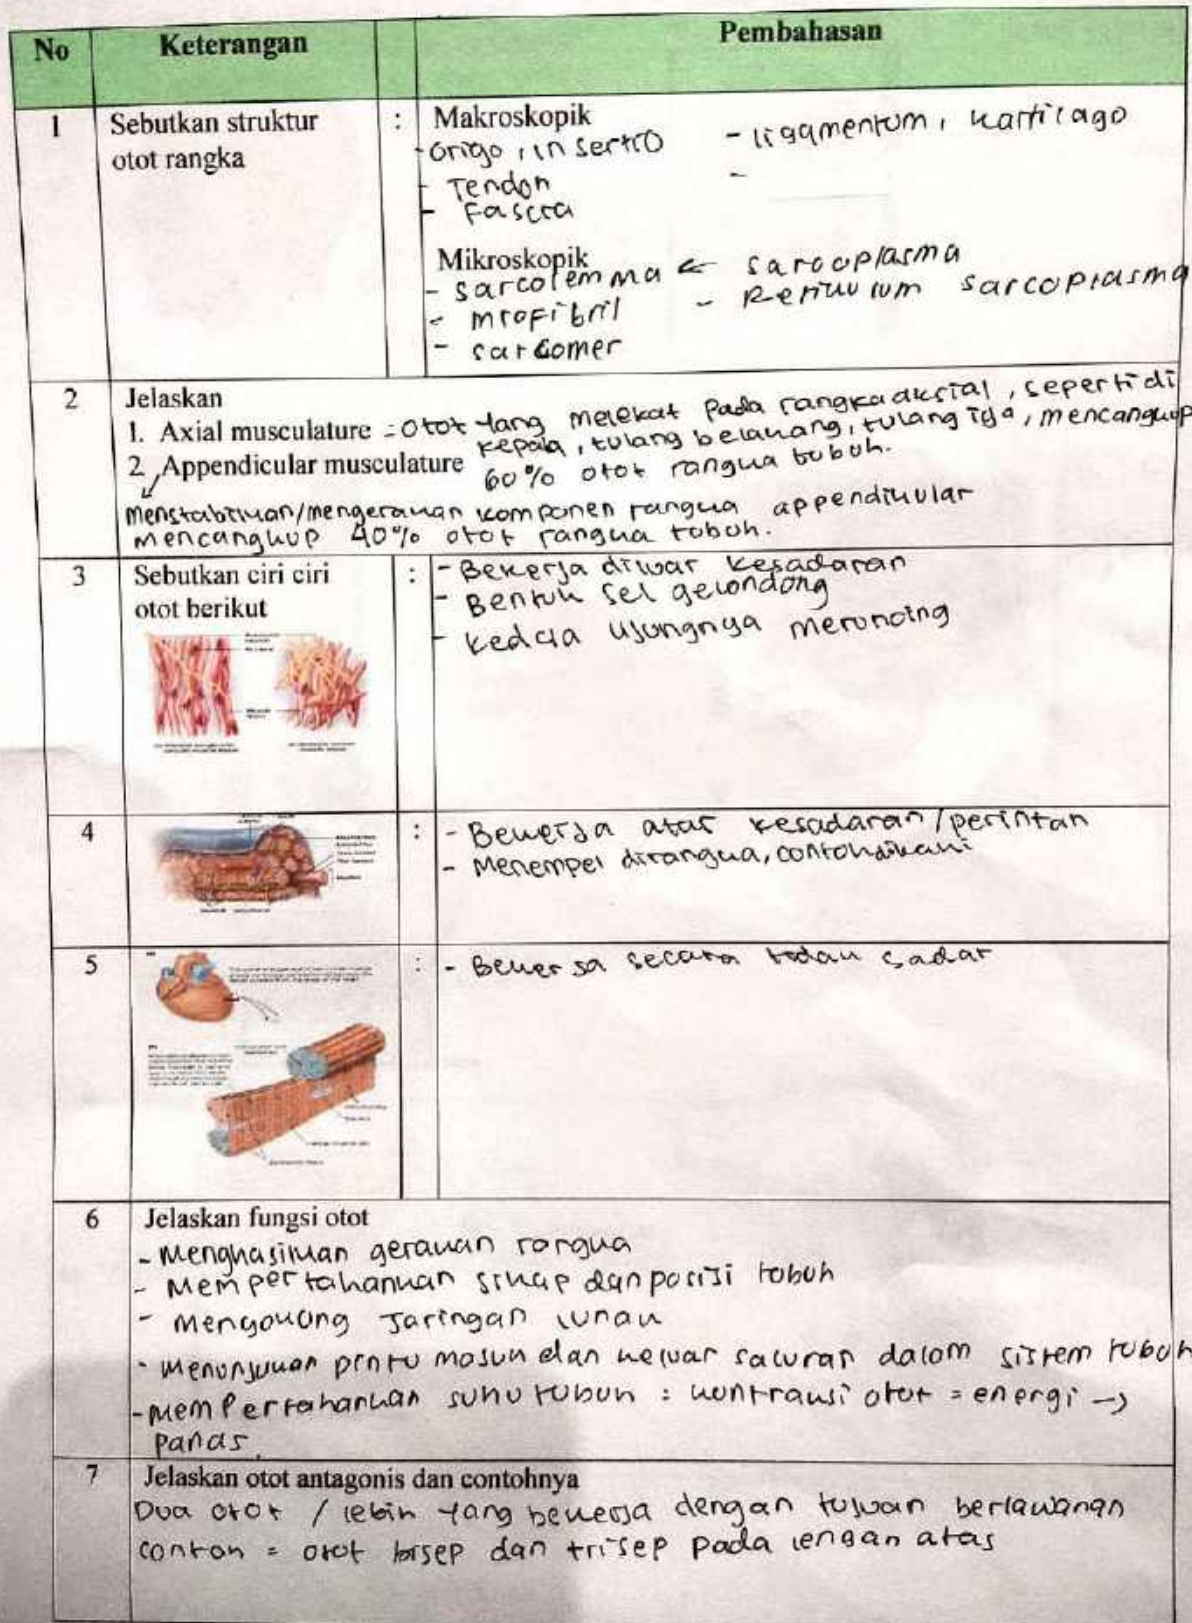 No Keterangan Pembahasan
1 Sebutkan struktur otot rangka :
Makroskopik
- Origo, insertio - ligamentum, kartilago
- Tendon -
- Fascia
Mikroskopik
- sarcolemma ← sarcoplasma
- miofibril - Retikulum sarcoplasma
- sarcomer
2 Jelaskan
1. Axial musculature = otot yang melekat pada rangka aksial, seperti di
kepala, tulang belakang, tulang iga, mencangkup
60% otot rangka tubuh.
2. Appendicular musculature
menstabilkan/mengerakan komponen rangka appendikular
mencangkup 40% otot rangka tubuh.
3 Sebutkan ciri ciri
otot berikut :
- Bekerja diluar kesadaran
- Bentuk sel gelondong
- kedua ujungnya meruncing
4 :
- Bekerja atas kesadaran/perintah
- Menempel dirangka, contoh
5 :
- Bekerja secara tidak sadar
6 Jelaskan fungsi otot
- Menghasilkan gerakan rangka
- Mempertahankan sikap dan posisi tubuh
- Mengokong jaringan lunak
- Menunjukan pintu masuk dan keluar saluran dalam sistem tubuh
- Mempertahankan suhu tubuh : kontraksi otot = energi →
panas.
7 Jelaskan otot antagonis dan contohnya
Dua otot / lebih yang bekerja dengan tujuan berlawanan
contoh = otot bisep dan trisep pada lengan atas